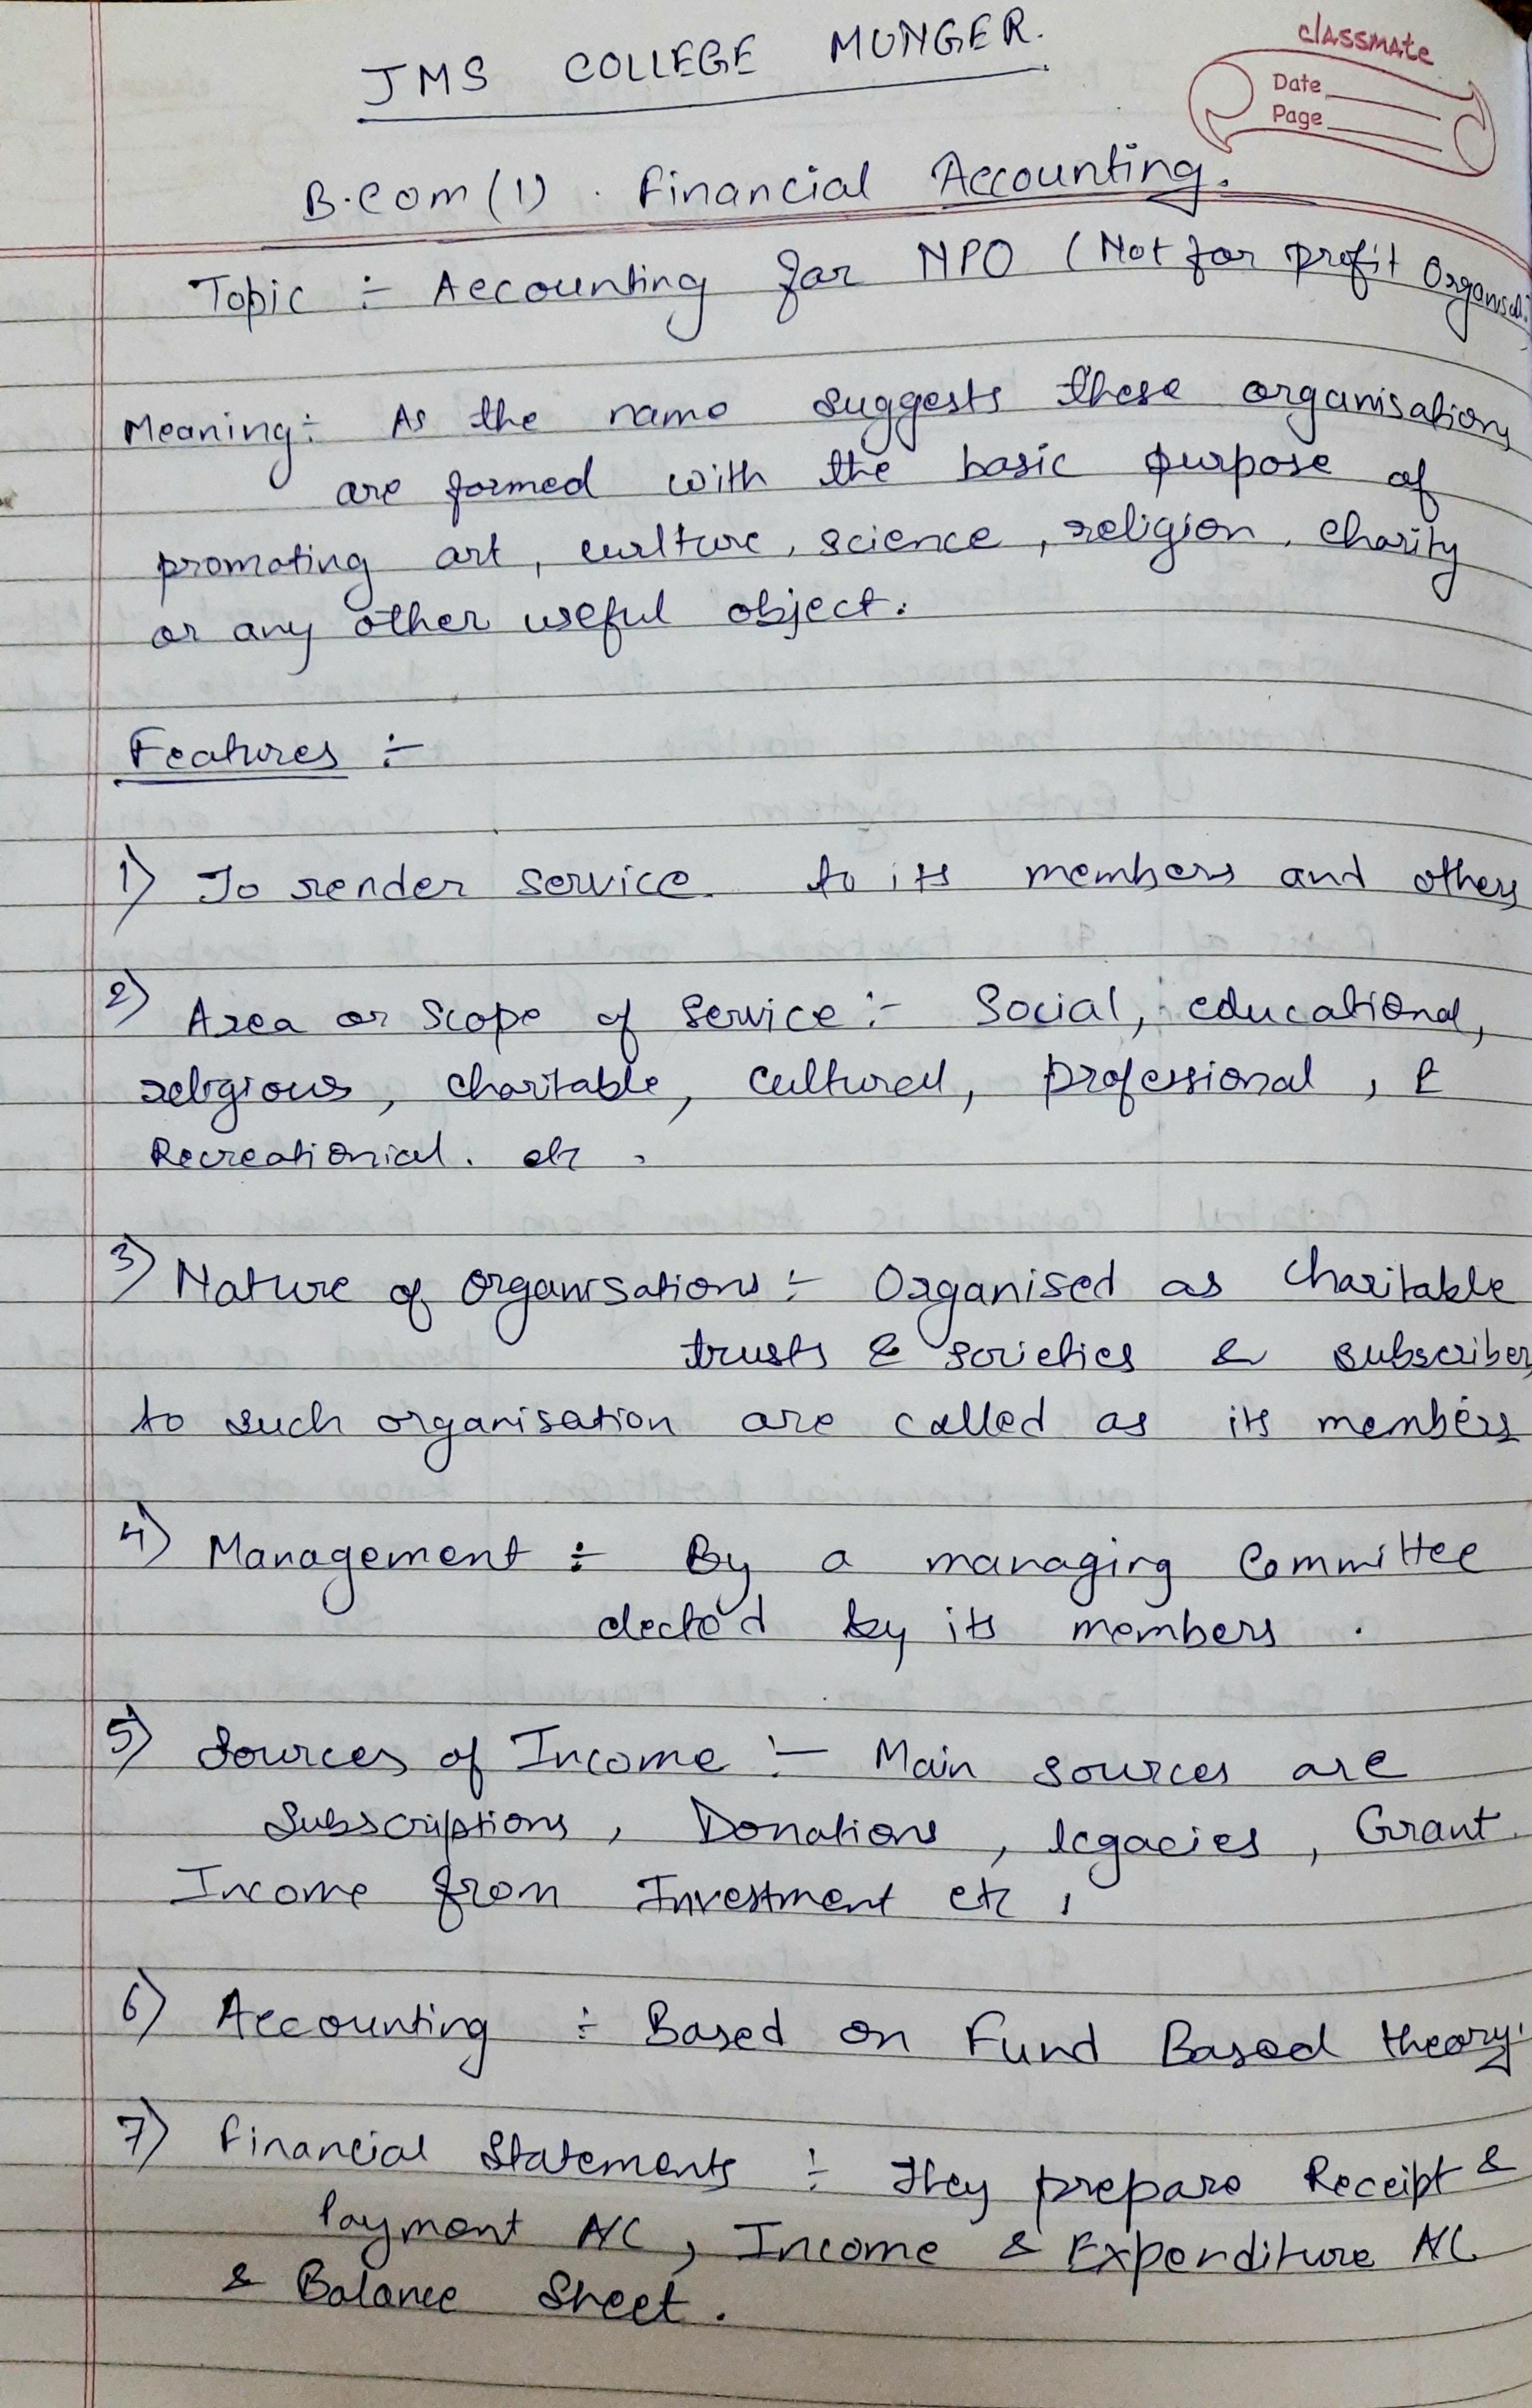 JMS COLLEGE MUNGER.
classmate
Date
Page
B.Com (1) . Financial Accounting.
Topic :- Accounting for NPO (Not for profit
Meaning:- As the name suggests these organisations
are formed with the basic purpose of
promoting art, culture, science, religion, charity
or any other useful object.
Features :-
1) To render service to its members and others
2) Area or Scope of Service :- Social, educational,
religious, charitable, cultural, professional, &
Recreationial. etc.
3) Nature of organisations :- Organised as charitable
trusts & societies & subscribers
to such organisation are called as its members
4) Management :- By a managing Committee
elected by its members.
5) Sources of Income :- Main sources are
Subscriptions, Donations, legacies, Grant
Income from Investment etc,
6) Accounting :- Based on Fund Based theory.
7) Financial Statements :- They prepare Receipt &
Payment A/C, Income & Expenditure A/C
& Balance Sheet.